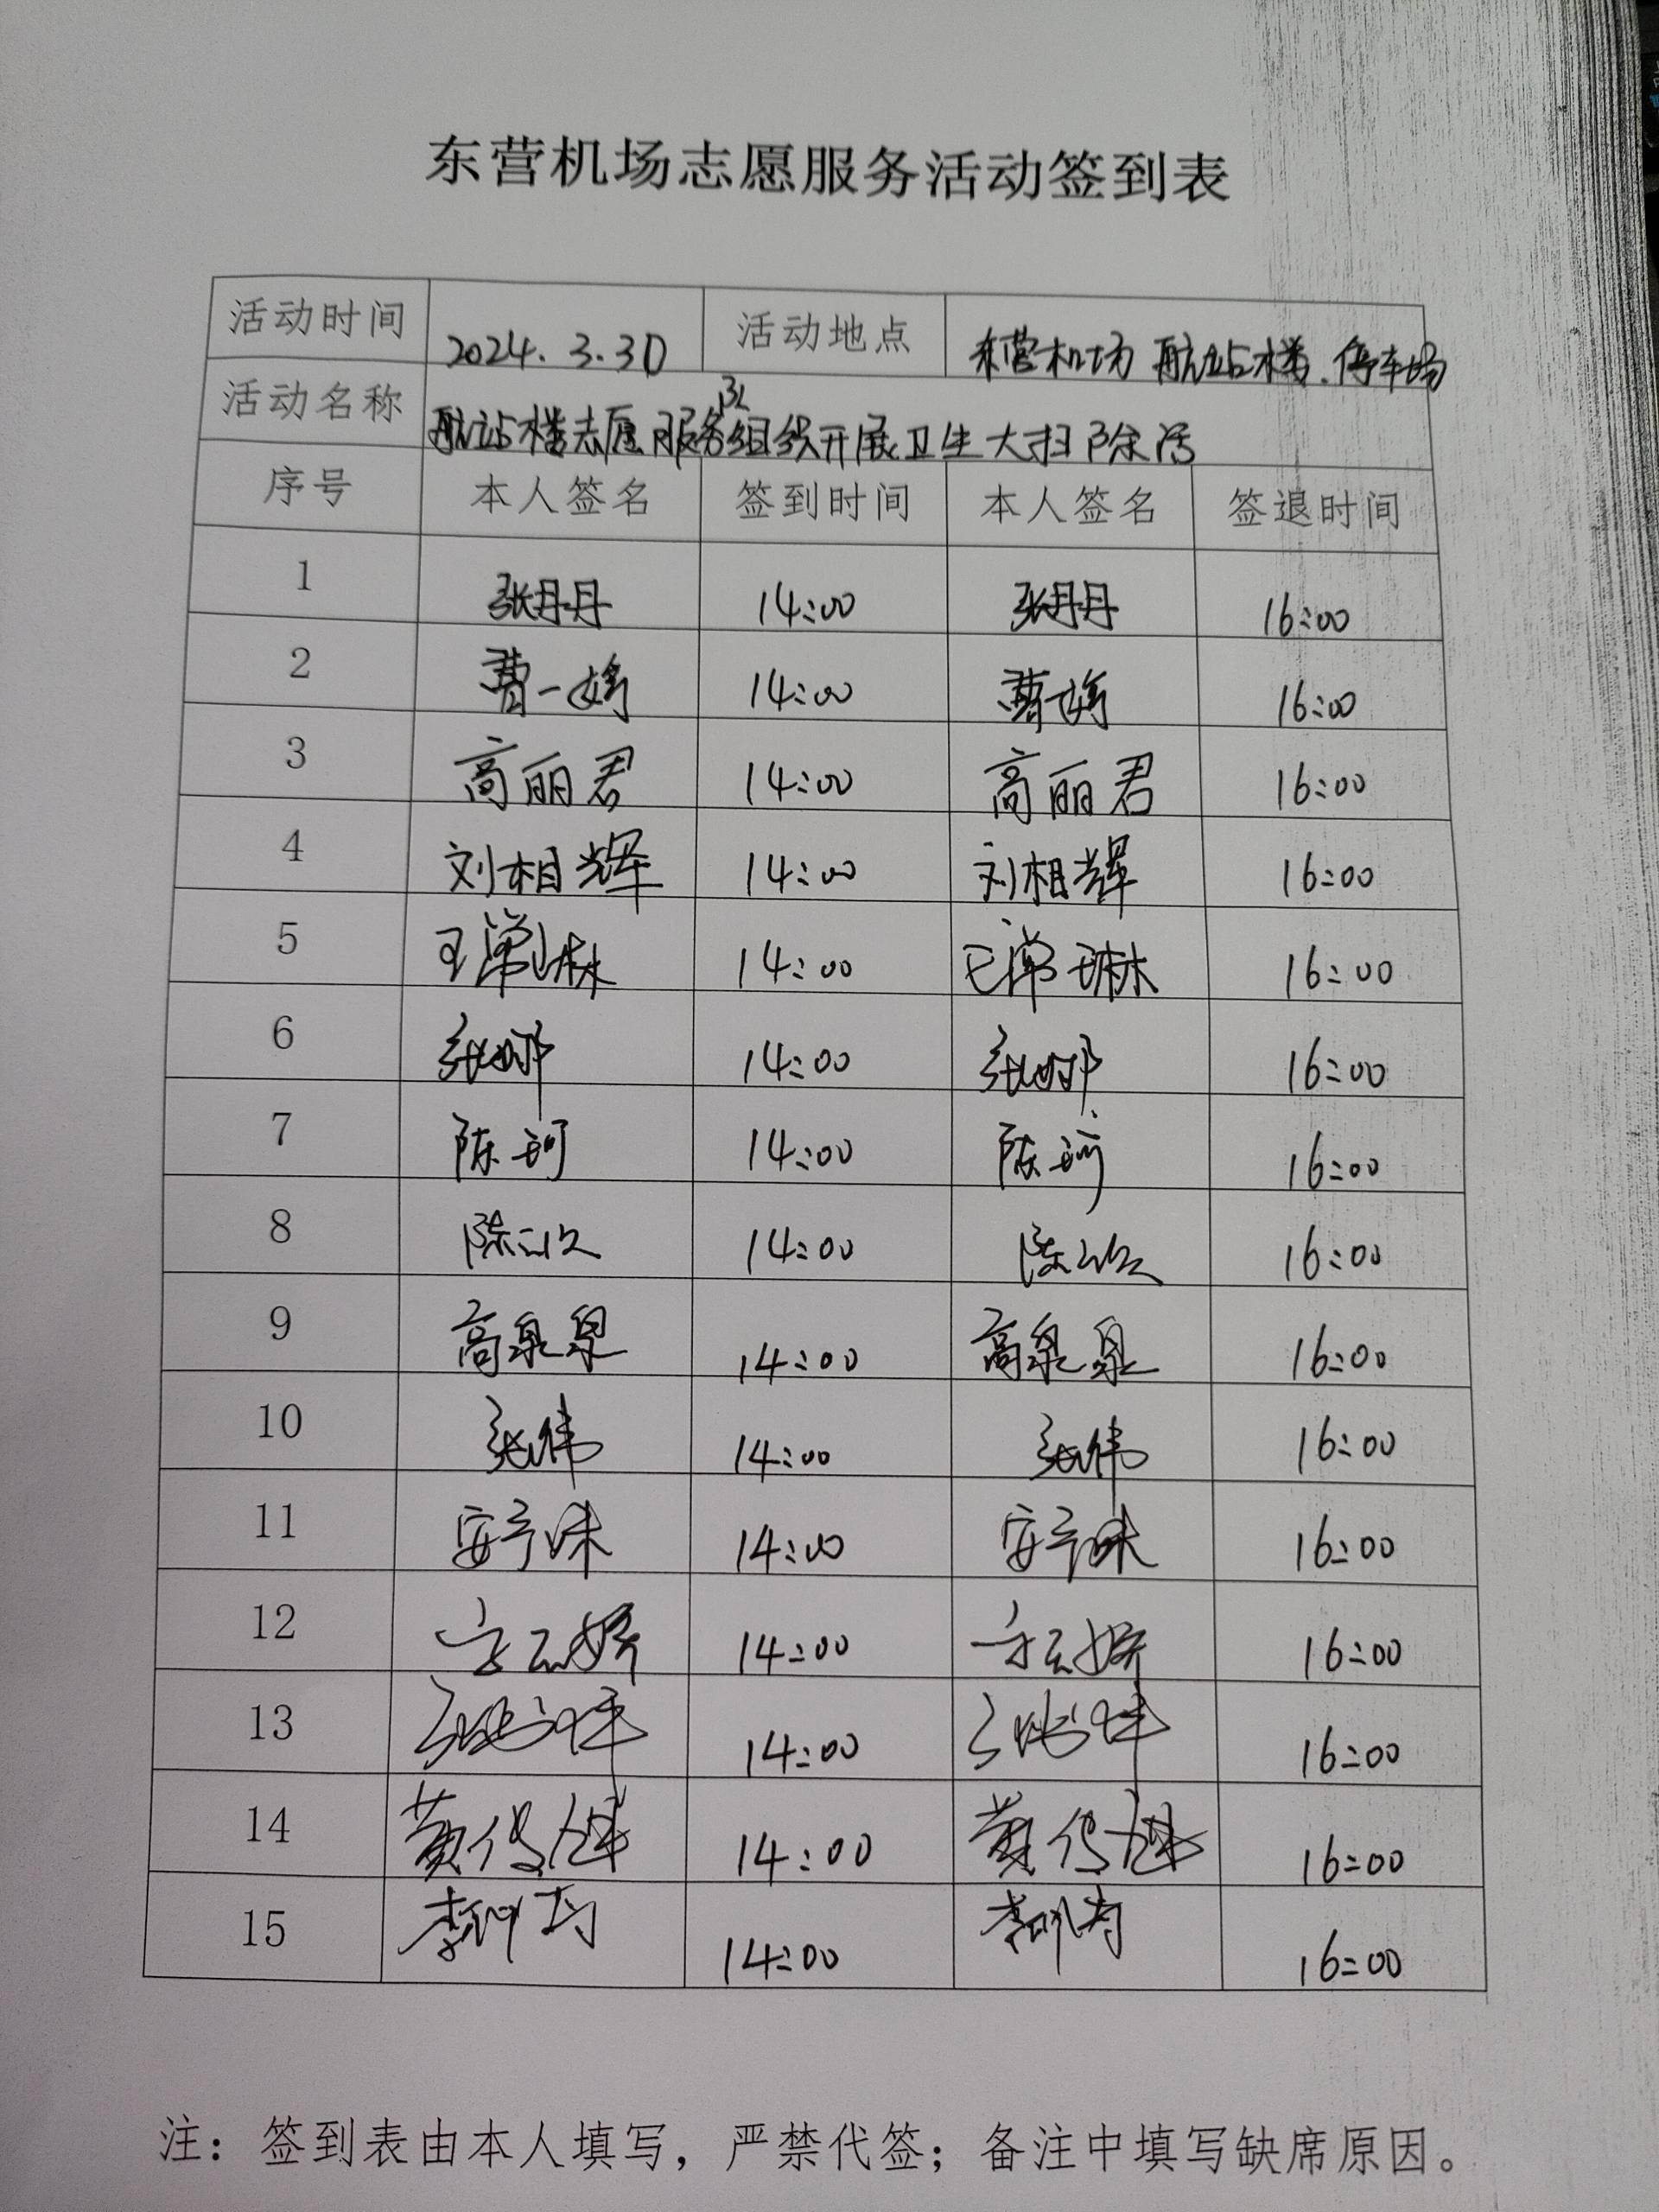 东营机场志愿服务活动签到表
活动时间 2024.3.30 活动地点 东营机场 航站楼、停车场
活动名称 航站楼志愿服务队组织开展卫生大扫除活
序号 本人签名 签到时间 本人签名 签退时间
1 张丹丹 14:00 张丹丹 16:00
2 曹一婷 14:00 曹一婷 16:00
3 高丽君 14:00 高丽君 16:00
4 刘相辉 14:00 刘相辉 16:00
5 14:00 16:00
6 张娜 14:00 张娜 16:00
7 陈珂 14:00 陈珂 16:00
8 陈 14:00 陈 16:00
9 高泉泉 14:00 高泉泉 16:00
10 张伟 14:00 张伟 16:00
11 安 14:00 安 16:00
12 14:00 16:00
13 14:00 16:00
14 黄 14:00 黄 16:00
15 李 14:00 李 16:00
注：签到表由本人填写，严禁代签；备注中填写缺席原因。